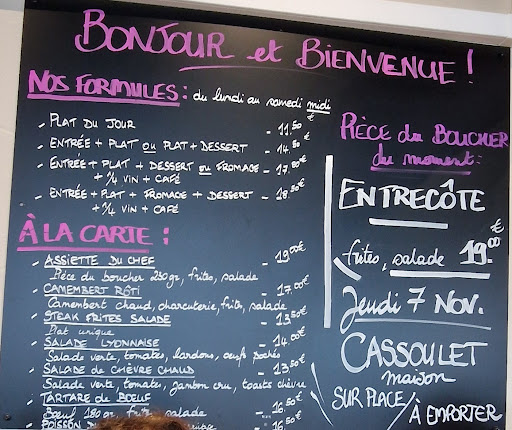 BONJOUR et BIENVENUE !
NOS FORMULES : du lundi au samedi midi
- PLAT DU JOUR - 11.50€
- ENTRÉE + PLAT ou PLAT + DESSERT - 14.50€
- ENTRÉE + PLAT + DESSERT ou FROMAGE - 17.50€
+ 1/4 VIN + CAFÉ
- ENTRÉE + PLAT + FROMAGE + DESSERT - 18.50€
+ 1/4 VIN + CAFÉ
À LA CARTE :
- ASSIETTE DU CHEF - 19.00€
Pièce du boucher 230gr, frites, salade
- CAMEMBERT RÔTI - 17.00€
Camembert chaud, charcuterie, frites, salade
- STEAK FRITES SALADE - 13.50€
Plat unique
- SALADE LYONNAISE - 14.00€
Salade verte, tomates, lardons, oeufs pochés
- SALADE de CHÈVRE CHAUD - 13.50€
Salade verte, tomates, jambon cru, toasts chèvre
- TARTARE de BOEUF
Boeuf 180gr, frites, salade - 16.50€
- POISSON - 16.50€
PIÈCE du BOUCHER
du moment :
ENTRECÔTE
frites, salade 19.00€
Jeudi 7 NOV.
CASSOULET
maison
SUR PLACE /
À EMPORTER